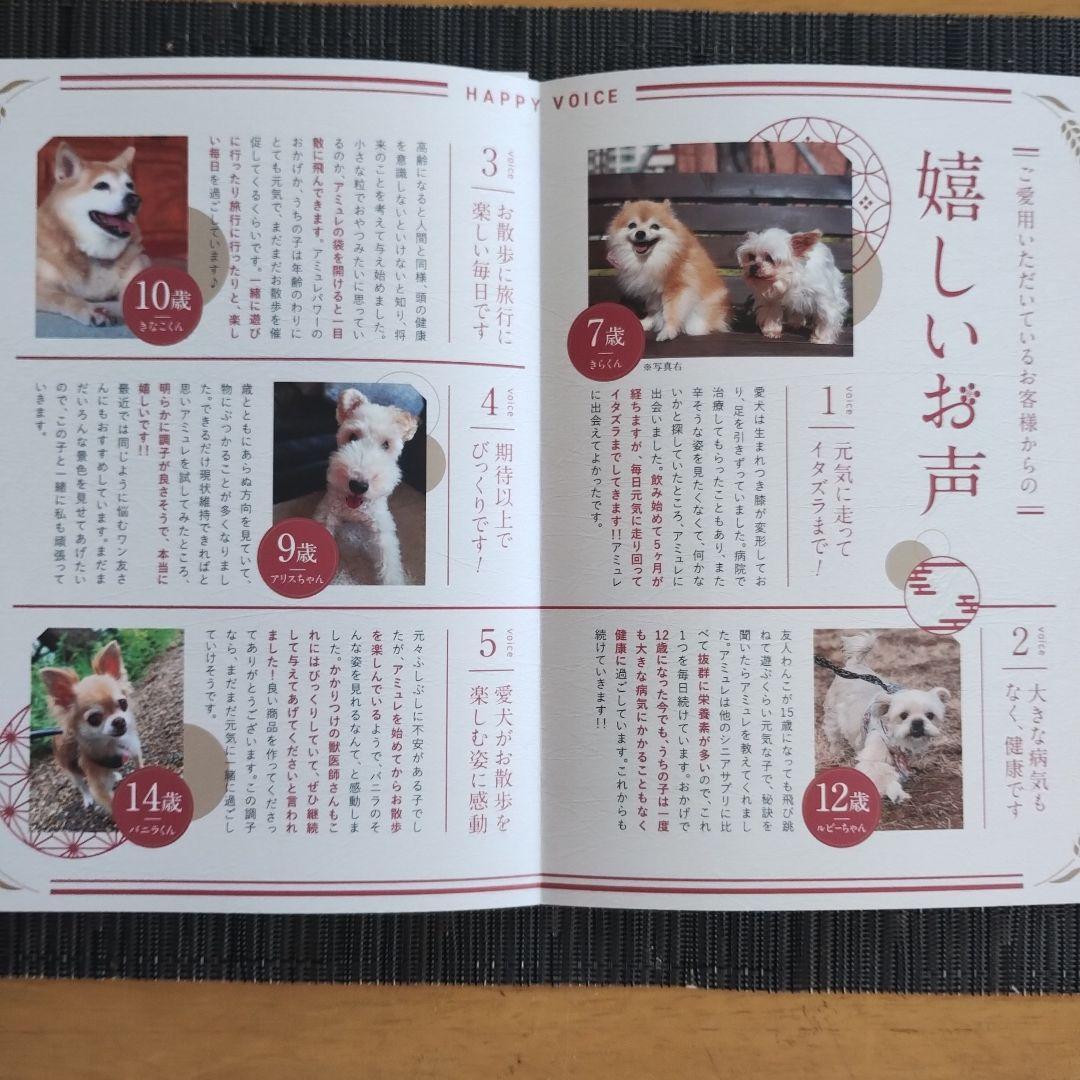 HAPPY VOICE
ご愛用いただいているお客様からの
嬉しいお声
voice
1
元気に走って
イタズラまで！
愛犬は生まれつき膝が変形してお
り、足を引きずっていました。病院で
治療してもらったこともあり、また
辛そうな姿を見たくなくて、何かな
いかと探していたところ、アミュレに
出会いました。飲み始めて5ヶ月が
経ちますが、毎日元気に走り回って
イタズラまでしてきます!!アミュレ
に出会えてよかったです。
7歳
きらくん
※写真右
voice
2
大きな病気も
なく、健康です
友人わんこが15歳になっても飛び跳
ねて遊ぶくらい元気な子で、秘訣を
聞いたらアミュレを教えてくれまし
た。アミュレは他のシニアサプリに比
べて抜群に栄養素が多いので、これ
1つを毎日続けています。おかげで
12歳になった今でも、うちの子は一度
も大きな病気にかかることもなく
健康に過ごしています。これからも
続けていきます!!
12歳
ルビーちゃん
voice
3
お散歩に旅行に
楽しい毎日です
高齢になると人間と同様、頭の健康
を意識しないといけないと知り、将
来のことを考えて与え始めました。
小さな粒でおやつみたいに思ってい
るのか、アミュレの袋を開けると一目
散に飛んできます。アミュレパワーの
おかげか、うちの子は年齢のわりに
とても元気で、まだまだお散歩を催
促してくるくらいです。一緒に遊び
に行ったり旅行に行ったりと、楽し
い毎日を過ごしています♪
10歳
きなこくん
voice
4
期待以上で
びっくりです！
歳とともにあらぬ方向を見ていて、
物にぶつかることが多くなりまし
た。できるだけ現状維持できればと
思いアミュレを試してみたところ、
明らかに調子が良さそうで、本当に
嬉しいです!!
最近では同じように悩むワン友さ
んにもおすすめしています。まだま
だいろんな景色を見せてあげたい
ので、この子と一緒に私も頑張って
いきます。
9歳
アリスちゃん
voice
5
愛犬がお散歩を
楽しむ姿に感動
元々ふしぶしに不安がある子でし
たが、アミュレを始めてからお散歩
を楽しんでいるようで、バニラのそ
んな姿を見れるなんて、と感動しま
した。かかりつけの獣医師さんもこ
れにはびっくりしていて、ぜひ継続
して与えてあげてくださいと言われ
ました！良い商品を作ってくださっ
てありがとうございます。この調子
なら、まだまだ元気に一緒に過ごし
ていけそうです。
14歳
バニラくん